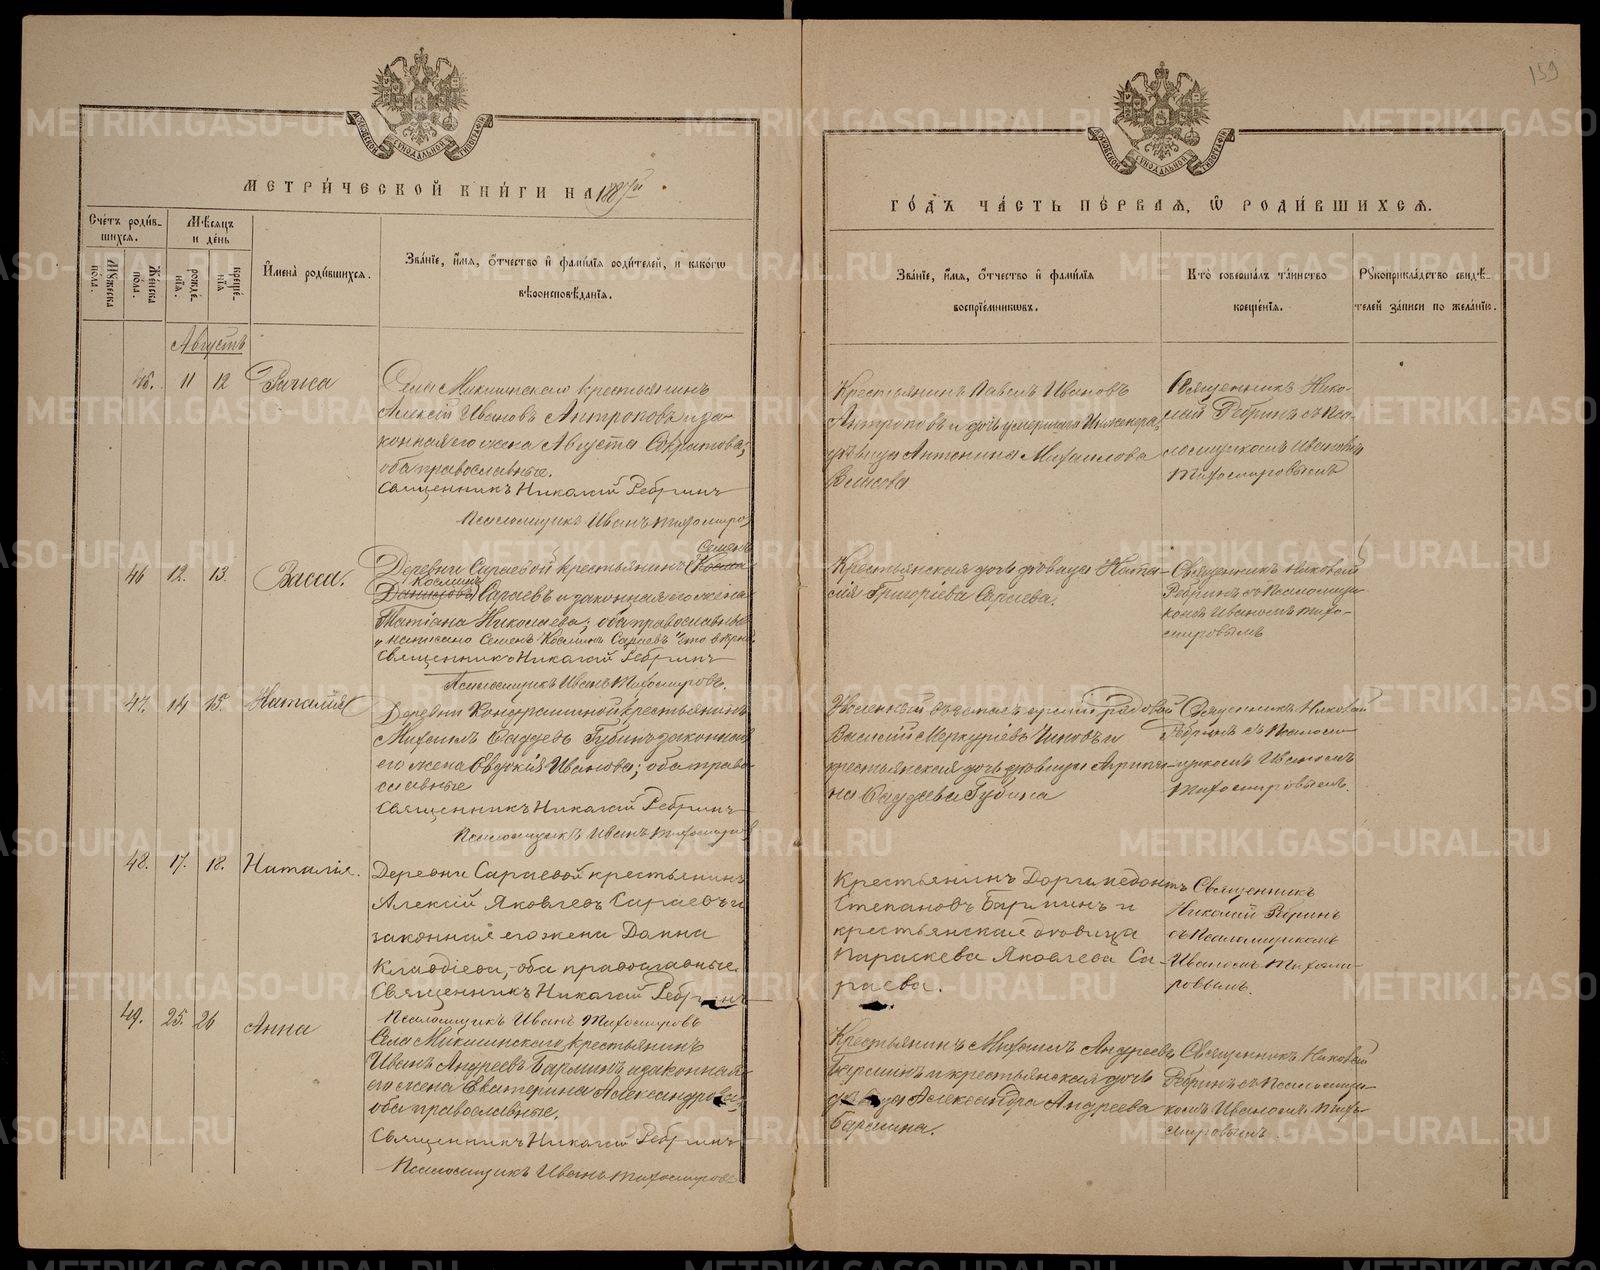 159
МЕТРИ́ЧЕСКОЙ КНИ́ГИ НА 188
ГО́ДЪ ЧА́СТЬ ПЕ́РВАЯ, Ѿ РОДИ́ВШИХСЯ.
Сче́тъ роди́в-
шихся.
Му́жеска по́ла.
Же́нска по́ла.
Мѣ́сяцъ и де́нь
рожде́нїя.
креще́нїя
И҆мена̀ роди́вшихся.
Зва́нїе, и҆́мя, ѻ҆́тчество и҆ фами́лїя роди́телей, и҆ како́гѡ
вѣроисповѣ́данїя.
Зва́нїе, и҆́мя, ѻ҆́тчество и҆ фами́лїя
воспрїе́мникѡвъ.
Кто̀ соверша́лъ та́инство
креще́нїя.
Рꙋкоприкла́дство свидѣ́-
телей за́писи по жела́нїю.
Августъ
45. 11 12 Раиса
Села Микшинскаго крестьянинъ
Алексій Ивановъ Антроповъ и за-
конная его жена Августа
оба православные.
Священникъ Николай Ребринъ
Псаломщикъ Иванъ Тихомиров
Крестьянинъ Павелъ Ивановъ
Антроповъ и дочь умершаго
дѣвица Антонина Михаилова
Священникъ Нико-
лай Ребринъ съ Пса-
ломщикомъ Иваномъ
Тихомировымъ
46 12. 13. Васса.
Семенъ
Деревни Сараевой крестьянинъ Косма
Космин
Даниловъ Сараевъ и законная его жена
Татіана Николаева; оба православные
написано Семенъ Косминъ Сараевъ что верно
Священникъ Николай Ребринъ
Псаломщикъ Иванъ Тихомировъ.
Крестьянская дочь дѣвица
Григоріева Сараева.
Священникъ Николай
Ребринъ съ Псаломщи-
комъ Иваномъ Тихо-
мировымъ
47. 14 15. Наталия
Деревни крестьянинъ
Михаилъ Фаддеевъ Губинъ законная
его жена Евдокія Иванова; оба право-
славные
Священникъ Николай Ребринъ
Псаломщикъ Иванъ Тихомиров
рядовой
Василій Меркуриевъ и
крестьянская дочь дѣвица Агрипи-
на Фаддеева Губина
Священникъ Николай
Ребринъ съ Псаломщ-
икомъ Иваномъ
Тихомировымъ.
48. 17. 18. Наталія.
Деревни Сараевой крестьянинъ
Алексій Яковлевъ Сараевъ и
законная его жена Домна
Клавдіева, оба православные.
Священникъ Николай Ребринъ
Псаломщикъ Иванъ Тихомировъ
Крестьянинъ Доримедонтъ
Степановъ Барминъ и
крестьянская вдовица
Параскева Яковлева Са-
раева.
Священникъ
Николай Ребринъ
съ Псаломщикомъ
Иваномъ Тихоми-
ровымъ.
49. 25. 26 Анна
Села Микшинскаго крестьянинъ
Иванъ Андреевъ Барминъ и законная
его жена Екатерина Александрова,
оба православные.
Священникъ Николай Ребринъ
Псаломщикъ Иванъ Тихомировъ
Крестьянинъ Михаилъ Андреевъ
Барминъ и крестьянская дочь
дѣвица Александра Андреева
Бармина.
Священникъ Николай
Ребринъ съ Псаломщи-
комъ Иваномъ Тихо-
мировымъ
METRIKI.GASO-URAL.RU